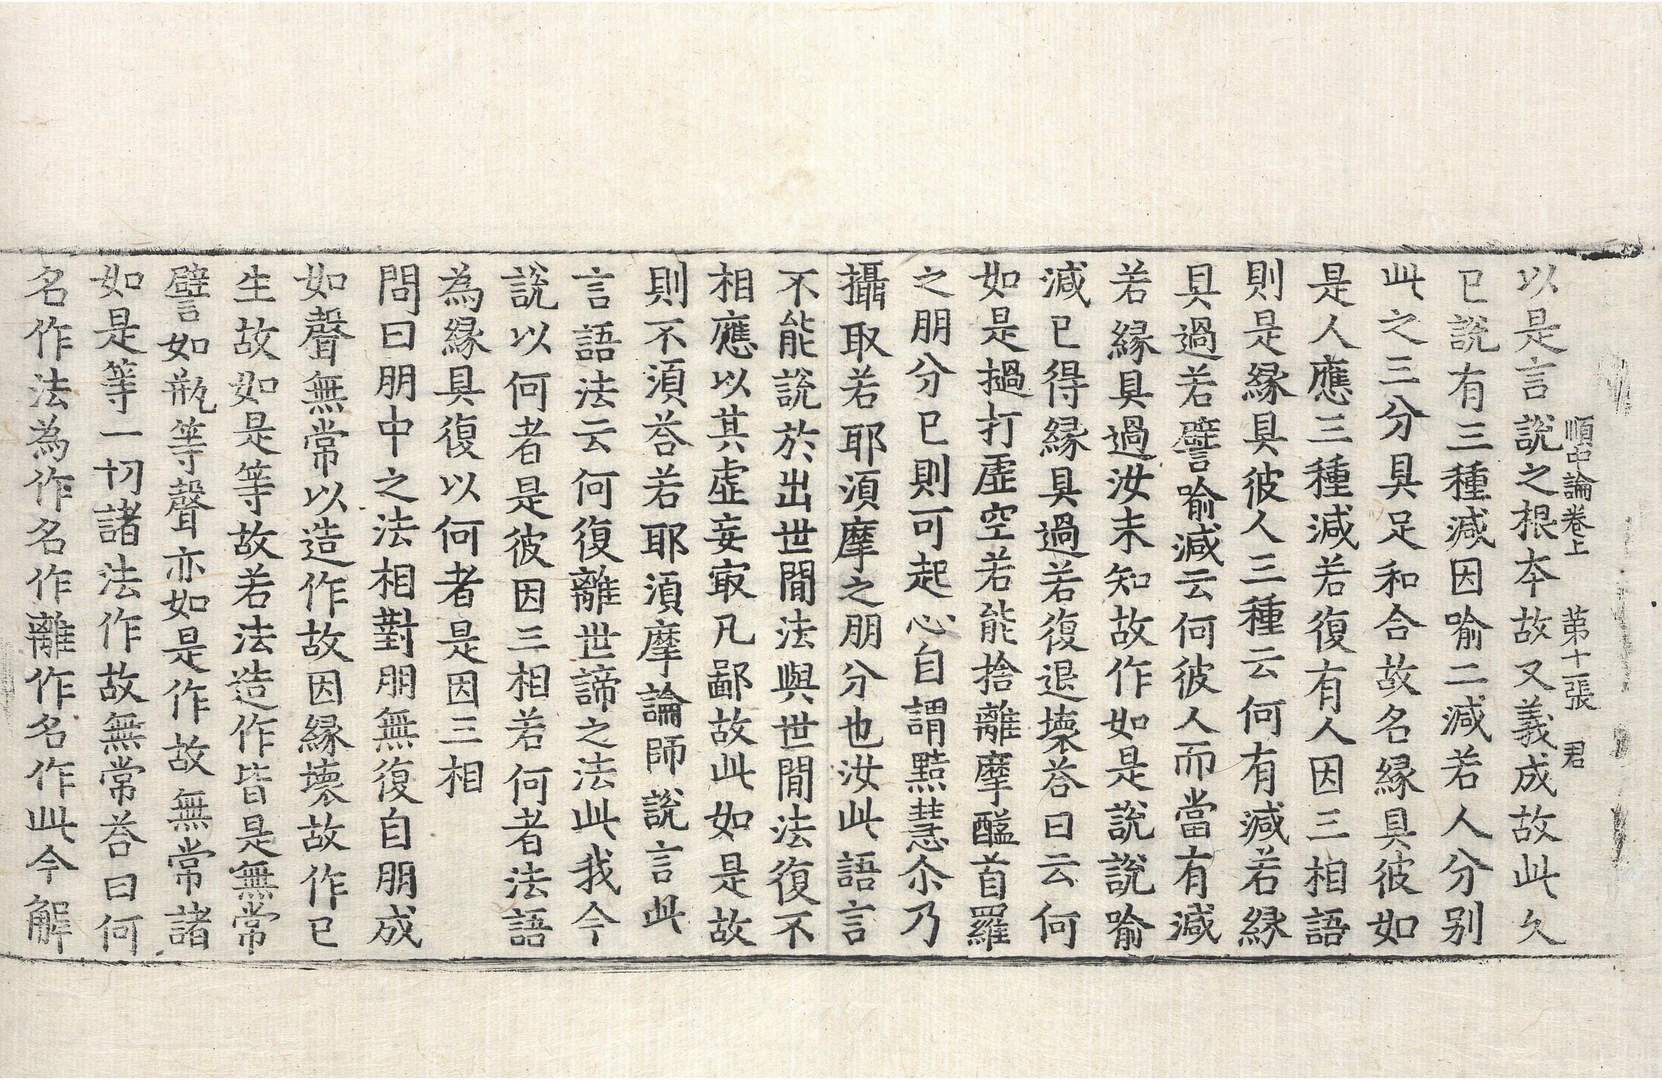 順中論卷上　第十二張　君
以是言說之根本故又義成故此久
已說有三種減因喻二減若人分別
此之三分具足和合故名緣具彼如
是人應三種減若復有人因三相語
則是緣具彼人三種云何有減若緣
具過若譬喻減云何彼人而當有減
若緣具過汝未知故作如是說說喻
減已得緣具過若復退壞荅曰云何
如是撾打虛空若能捨離摩醯首羅
之朋分已則可起心自謂黠慧尒乃
攝取若耶須摩之朋分也汝此語言
不能說於出世閒法與世閒法復不
相應以其虛妄寂凡鄙故此如是故
則不須荅若耶須摩論師說言此
言語法云何復離世諦之法此我今
說以何者是彼因三相若何者法語
為緣具復以何者是因三相
問曰朋中之法相對朋無復自朋成
如聲無常以造作故因緣壞故作已
生故如是等故若法造作皆是無常
譬如瓶等聲亦如是作故無常諸
如是等一切諸法作故無常荅曰何
名作法為作名作離作名作此今解